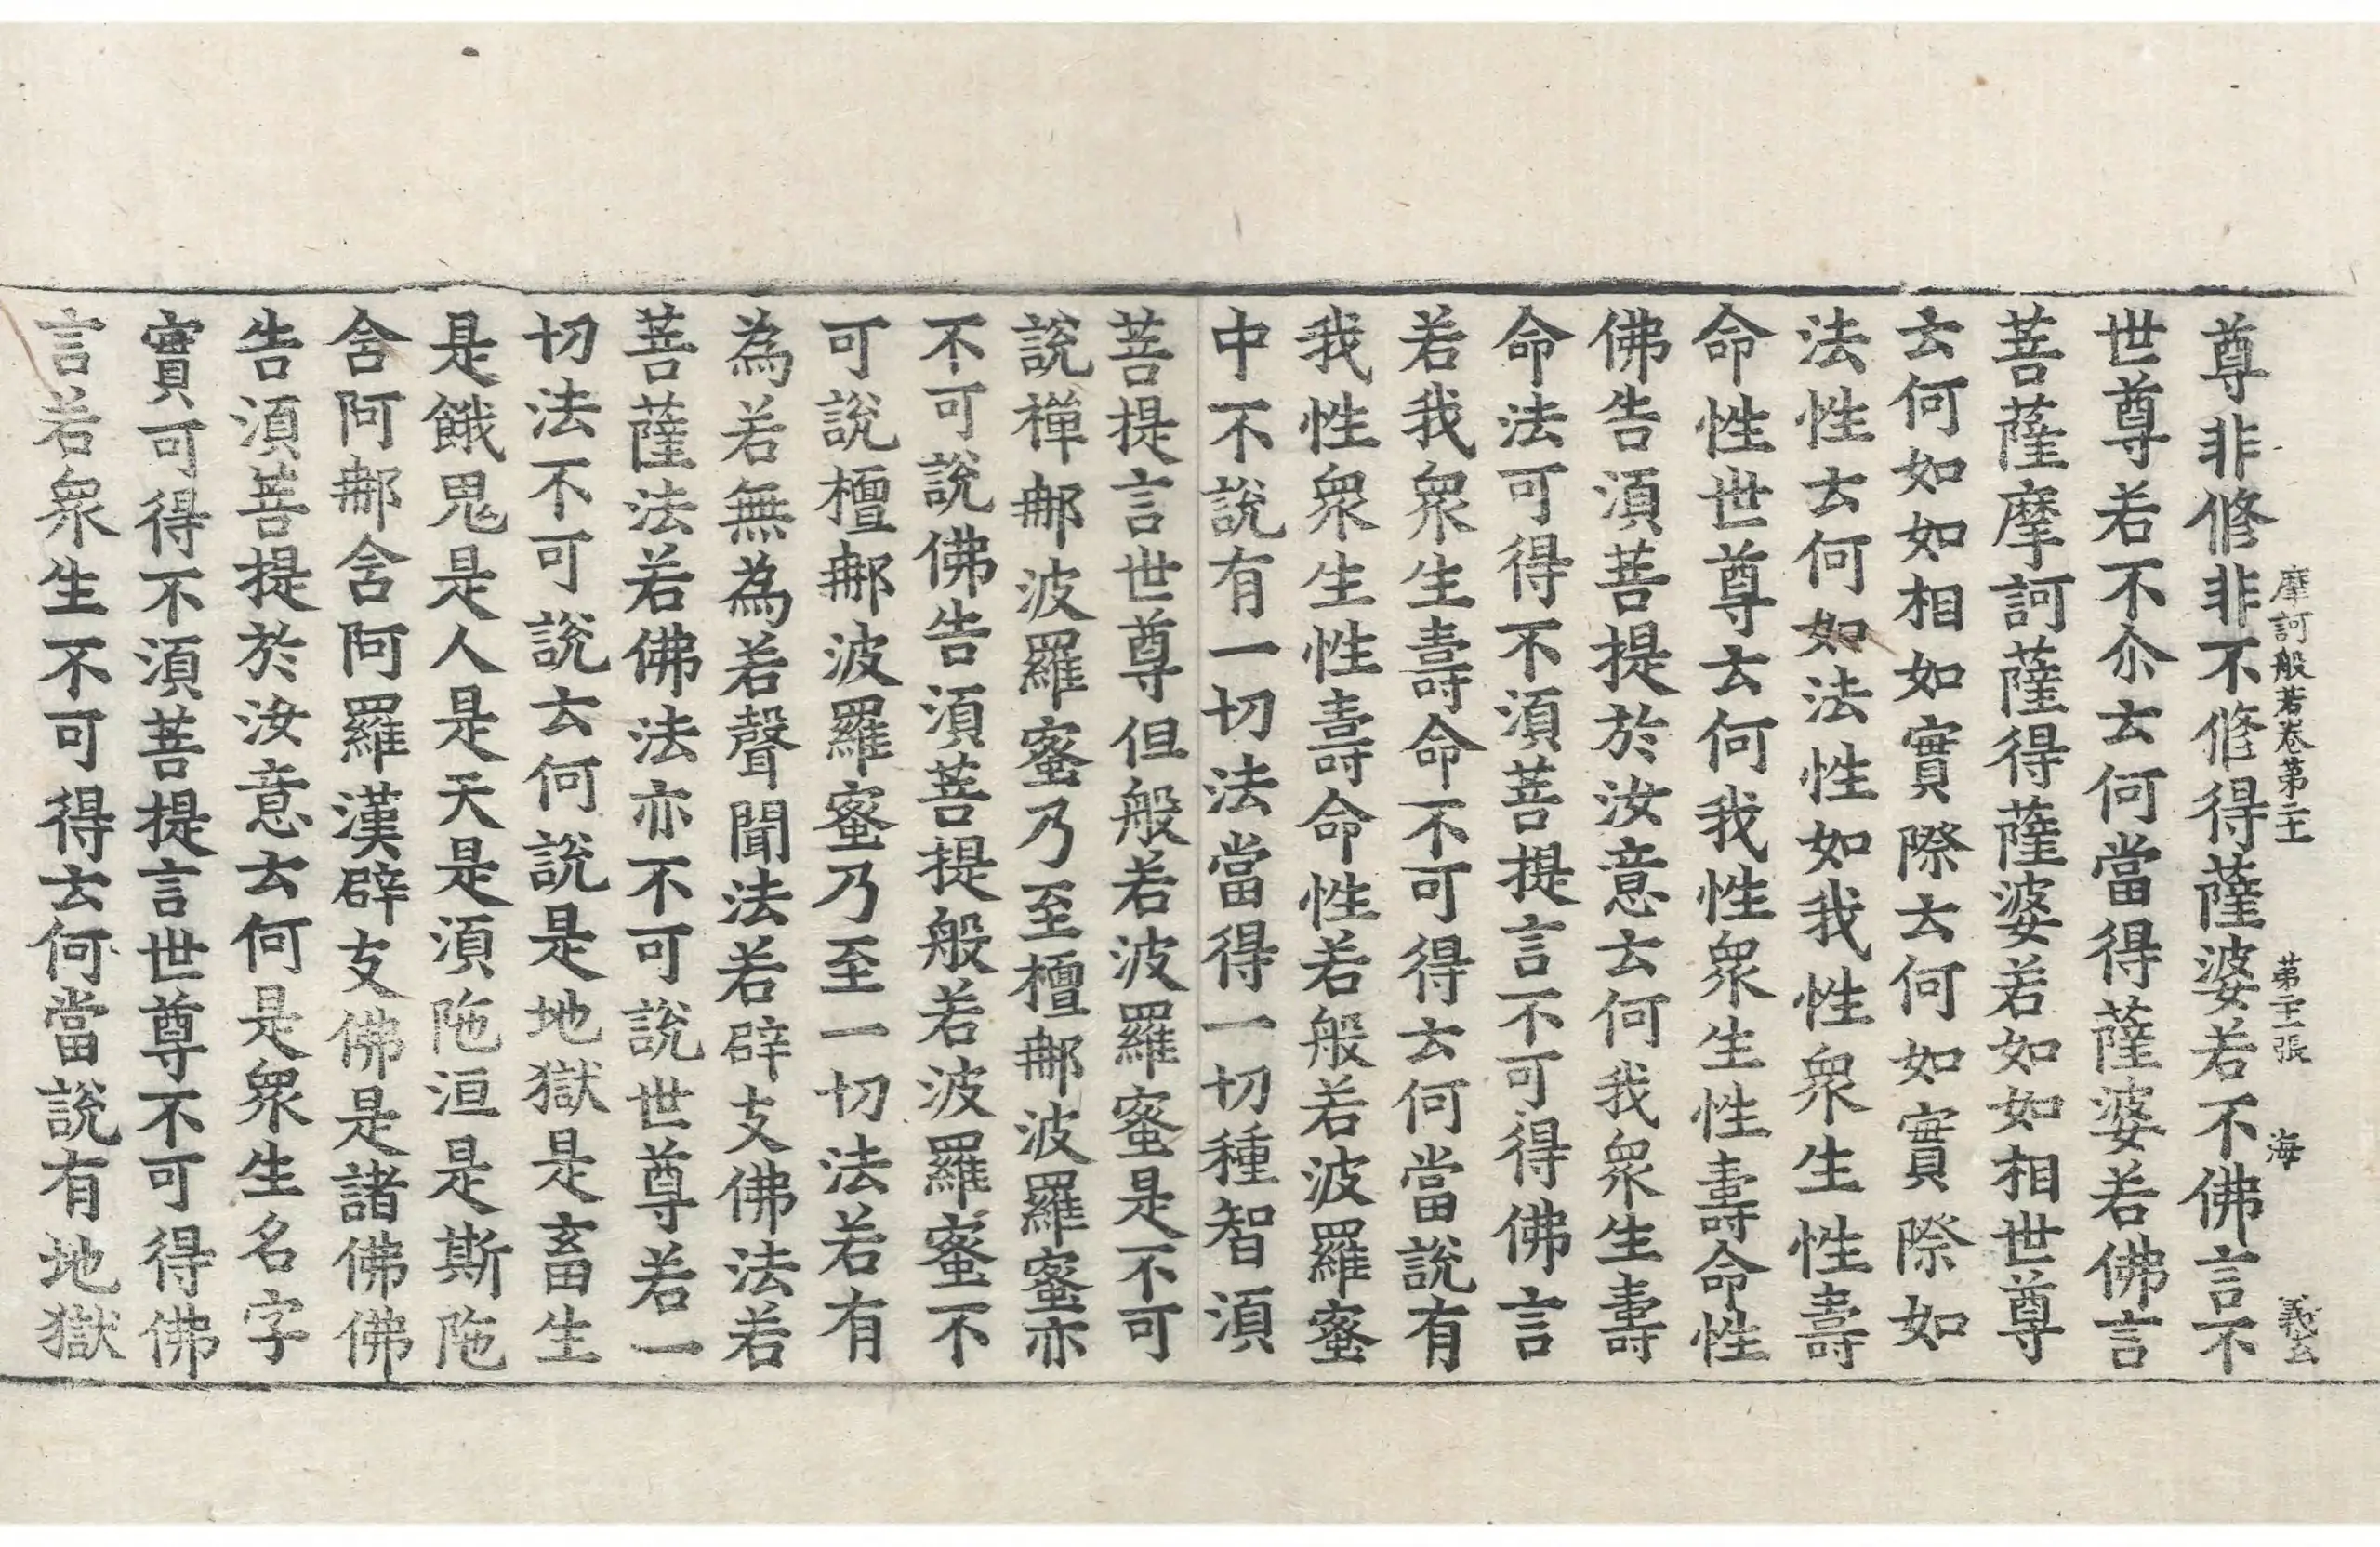 摩訶般若卷第二十一 第張 海 義玄
尊非修非不修得薩婆若不佛言不
世尊若不尒云何當得薩婆若佛言
菩薩摩訶薩得薩婆若如如相世尊
云何如如相如實際云何如實際如
法性云何如法性如我性衆生性壽
命性世尊云何我性衆生性壽命性
佛告湏菩提於汝意云何我衆生壽
命法可得不湏菩提言不可得佛言
若我衆生壽命不可得云何當說有
我性衆生性壽命性若般若波羅蜜
中不說有一切法當得一切種智湏
菩提言世尊但般若波羅蜜是不可
說禪那波羅蜜乃至檀那波羅蜜亦
不可說佛告湏菩提般若波羅蜜不
可說檀那波羅蜜乃至一切法若有
為若無為若聲聞法若辟支佛法若
菩薩法若佛法亦不可說世尊若一
切法不可說云何說是地獄是畜生
是餓鬼是人是天是湏陁洹是斯陁
含阿那含阿羅漢辟支佛是諸佛佛
告湏菩提於汝意云何是衆生名字
實可得不湏菩提言世尊不可得佛
言若衆生不可得云何當說有地獄